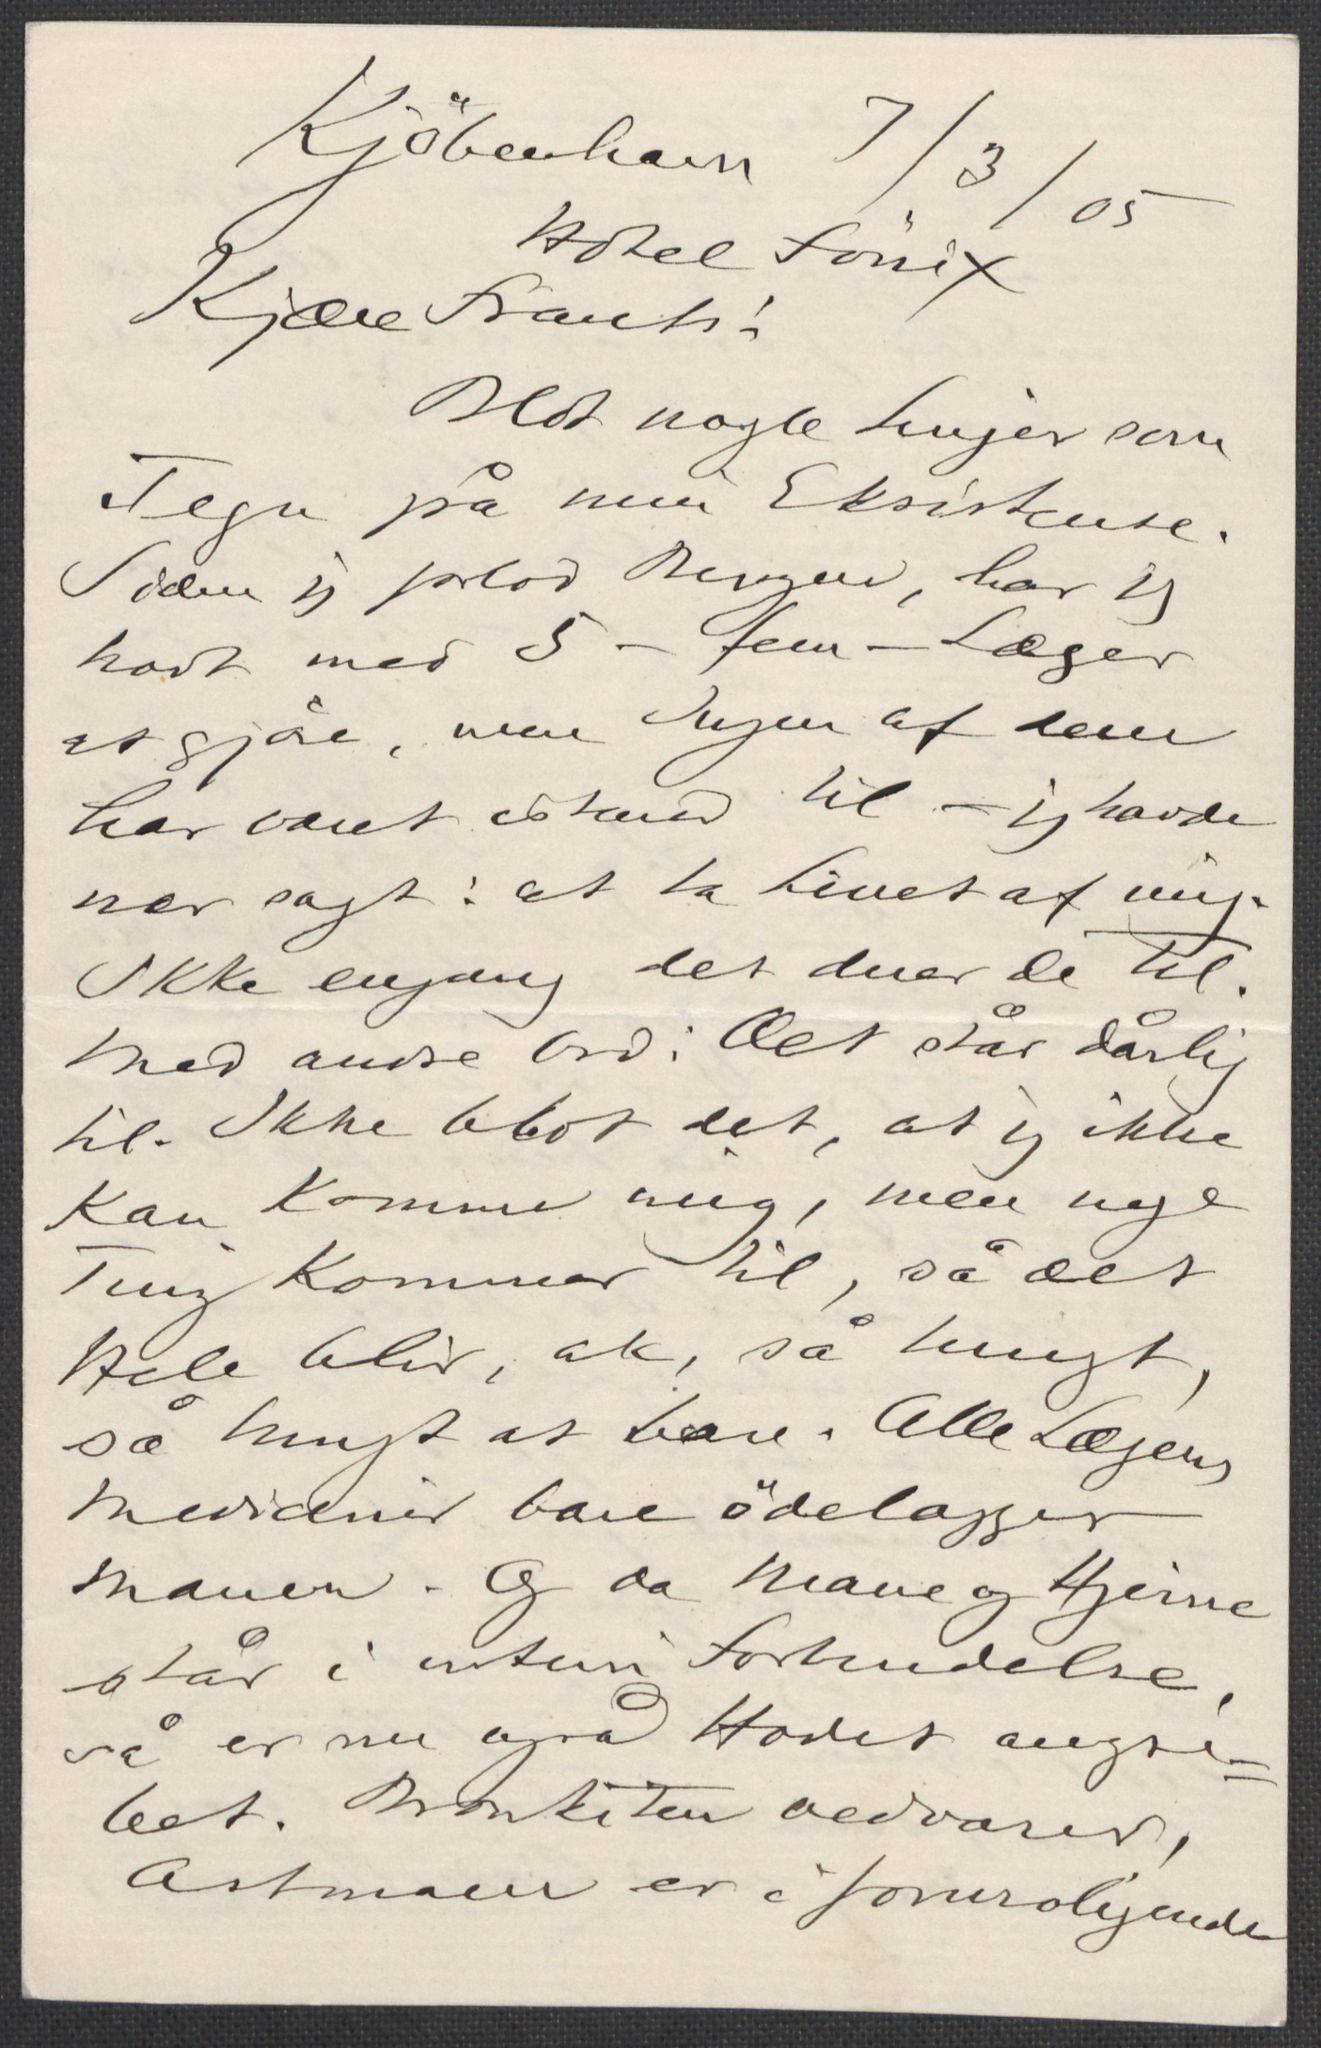 Kjöbenhavn 7/3/05
Hotel Fönix
Kjære Frants!
Blot nogle Linjer som
Tegn på min Eksistense.
Siden jeg forlod Bergen, har jeg
havt med 5 – fem – Læger
at gjøre, men Ingen af dem
har været istand til – jeg havde
nær sagt: at ta Livet af mig.
Ikke engang det duer de til.
Med andre Ord: Det står dårlig
til. Ikke blot det, at jeg ikke
kan komme mig, men nye
Ting kommer til, så det
Hele blir, ak, så tungt,
så tungt at bære. Alle Lægens
Mediciner bare ödelægger
Maven. Og da Mave og Hjerne
står i intim Forbindelse,
så er nu også Hodet angre=
bet. Bronkiten vedvarer,
Astmaen er i foruroligende